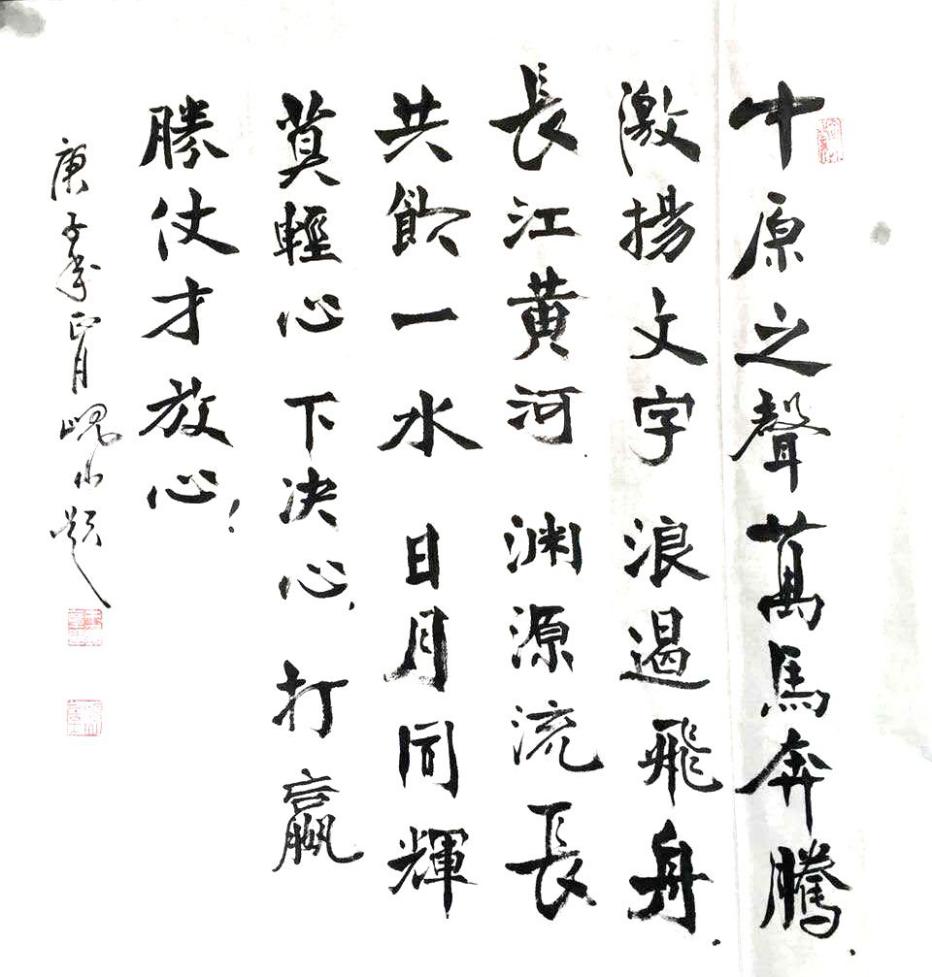 中原之聲萬馬奔騰.
激揚文字 浪遏飛舟.
長江黄河. 渊源流長
共飲一水 日月同輝
莫輕心 下决心, 打贏
勝仗才放心!
庚子年正月 山題